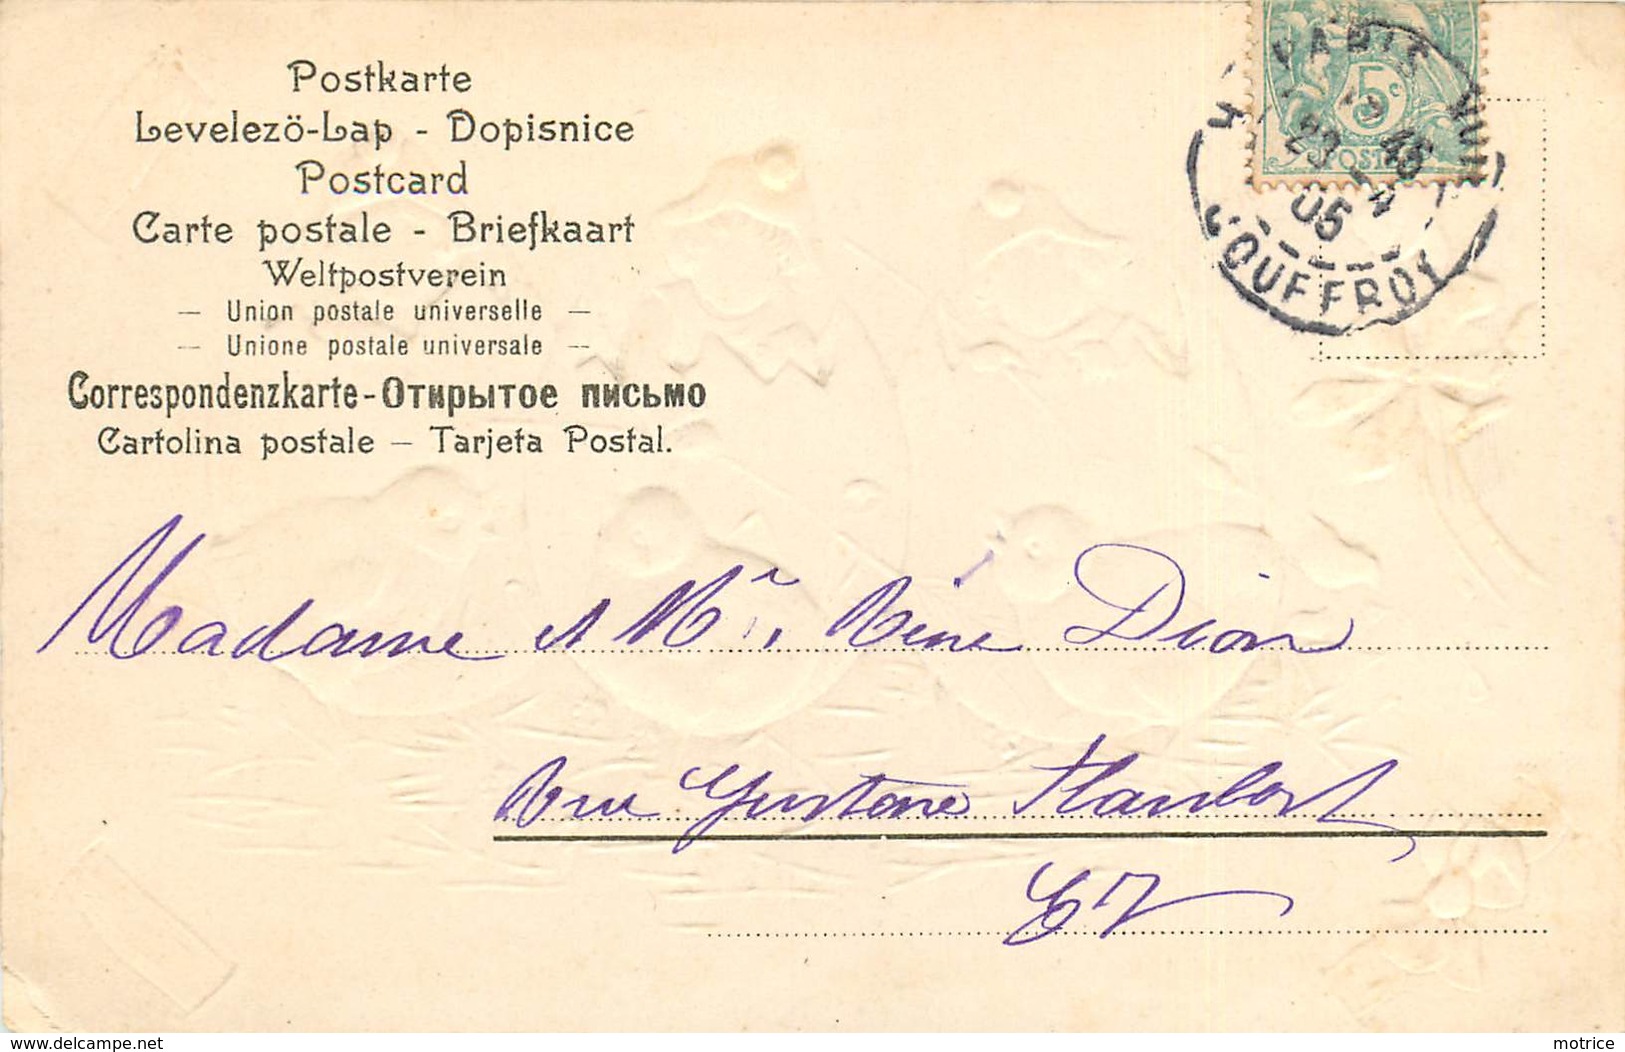 Postkarte
Levelező-Lap - Dopisnice
Postcard
Carte postale - Briefkaart
Weltpostverein
— Union postale universelle —
— Unione postale universale —
Correspondenzkarte-Открытое письмо
Cartolina postale — Tarjeta Postal.
PARIS
5c
23 45
POSTES
4
05
JOUFFROY
Madame et Mr. Réné Dion
Rue Gustave Flaubert
67
www.delcampe.net
motrice